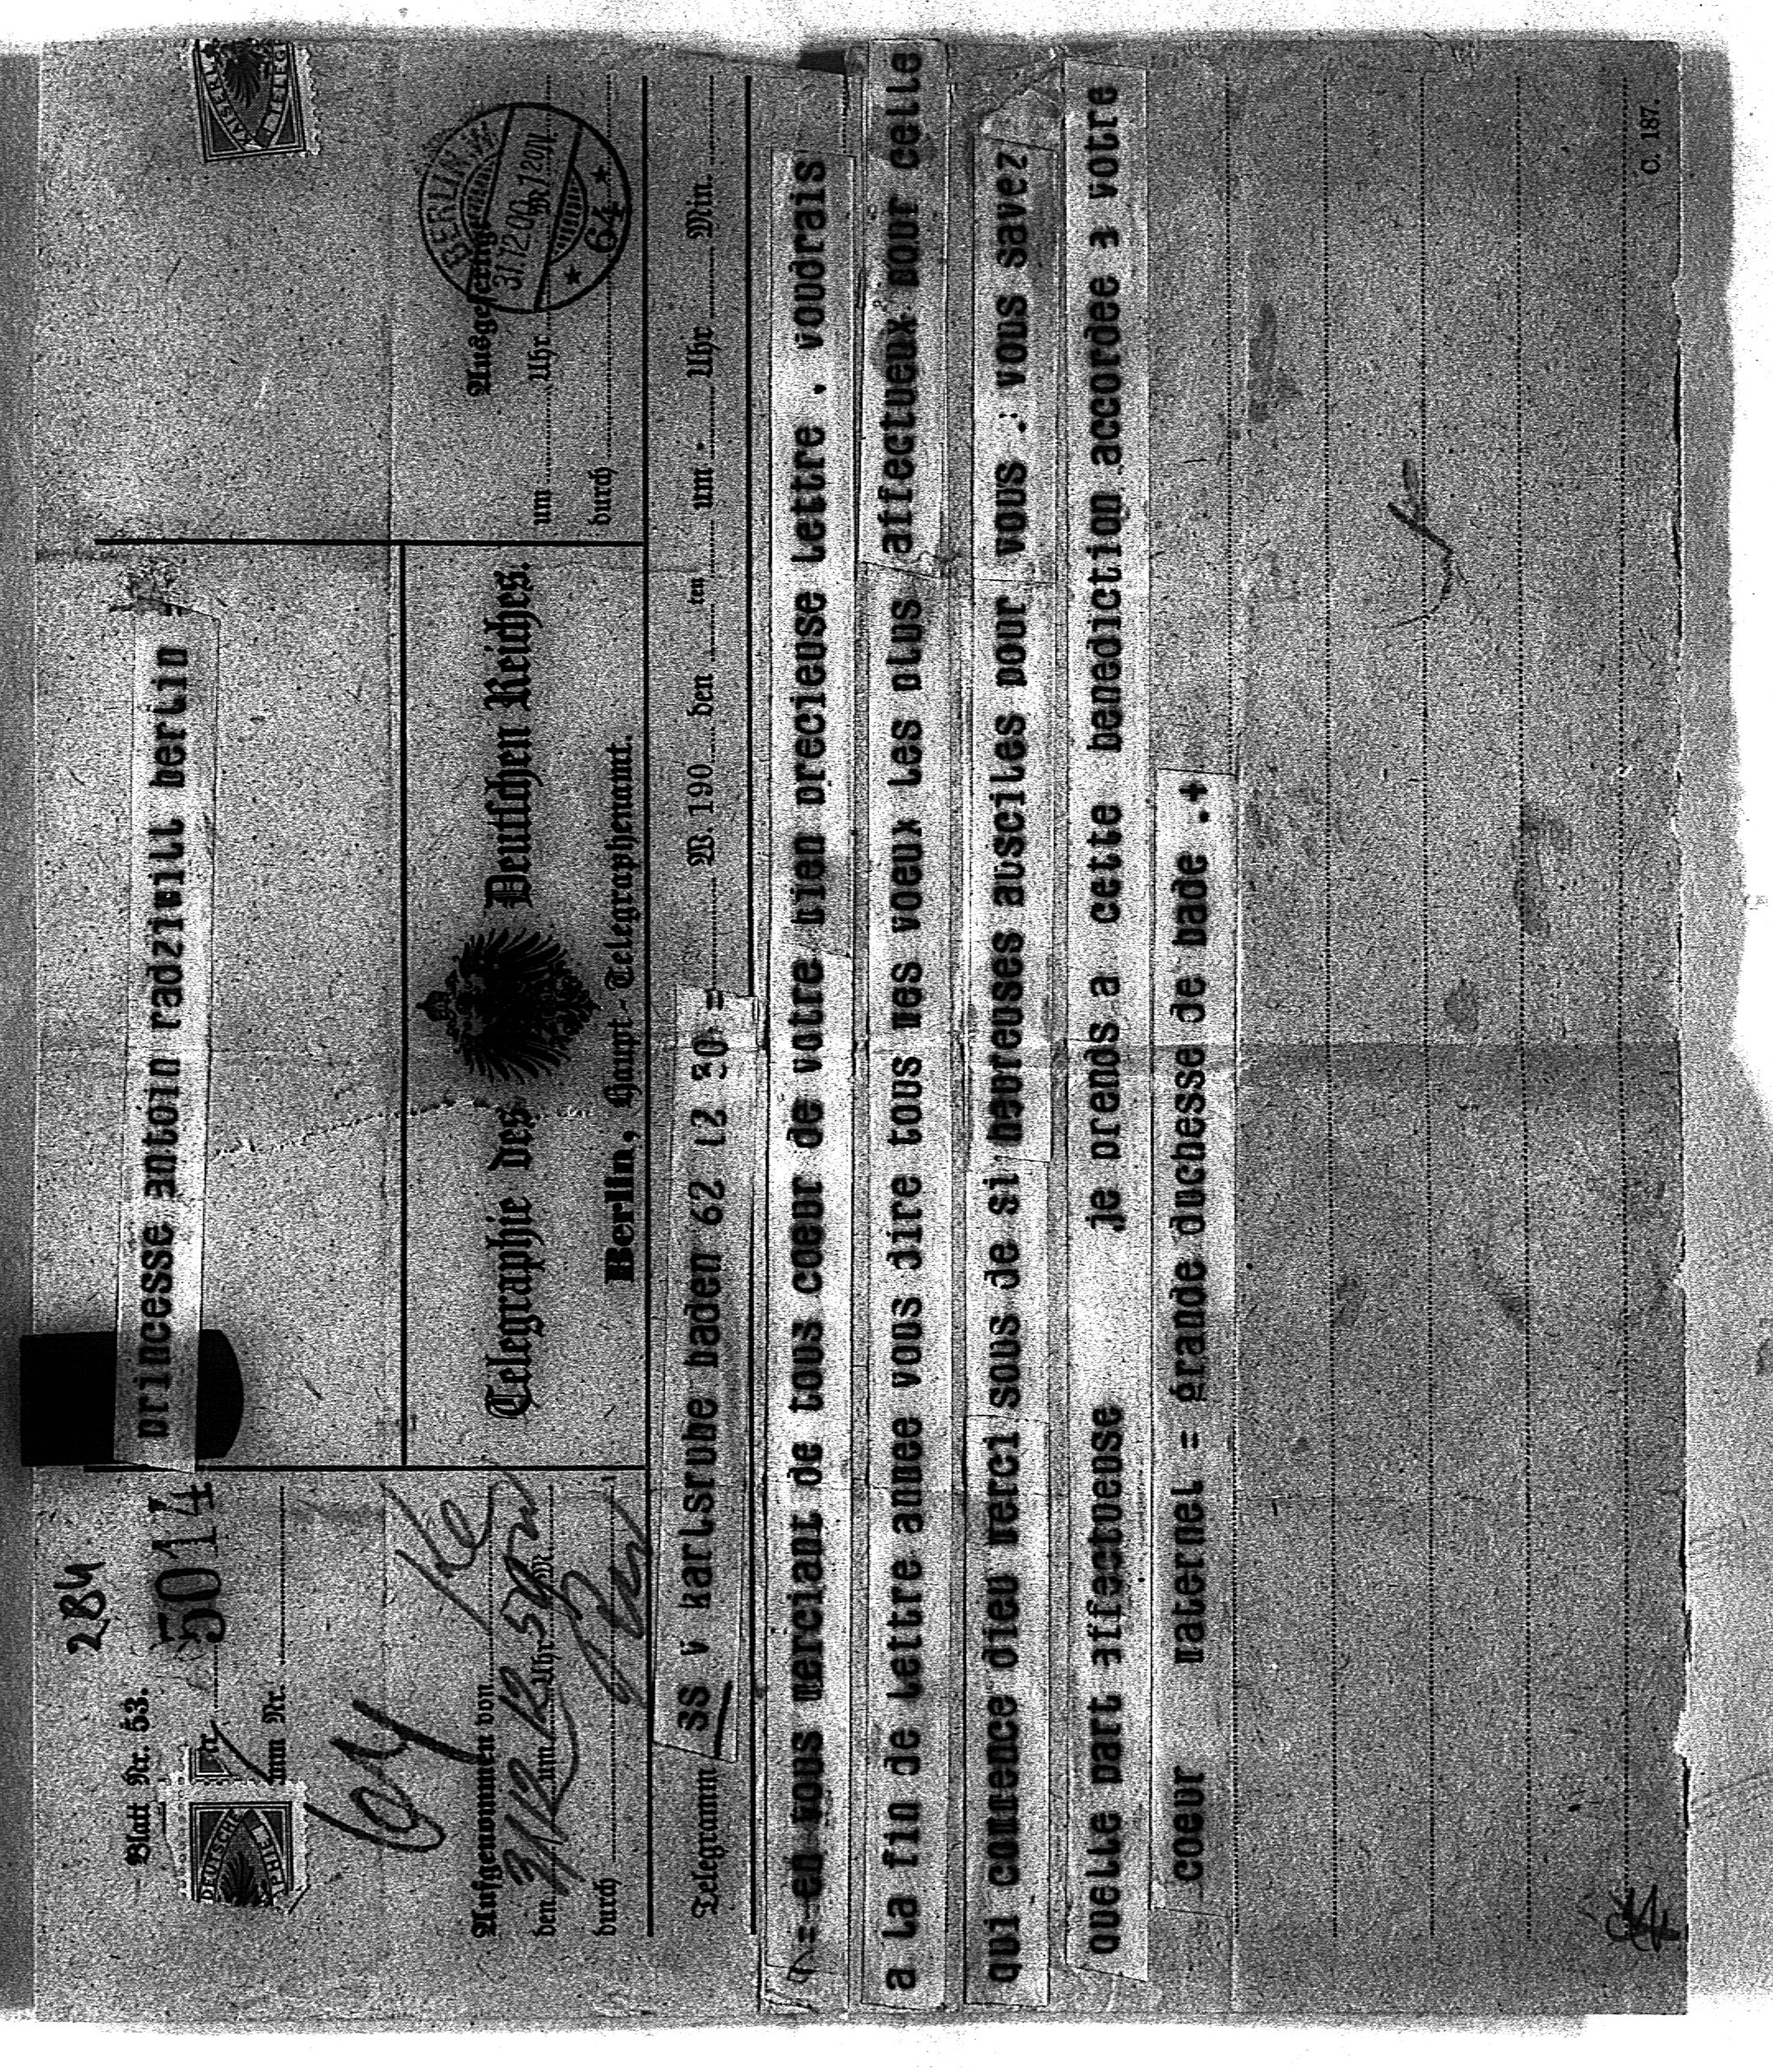 2B4
Blatt Nr. 53.
princesse antoin radziwill berlin =
5014
zum Nr.
DEUTSCHE
KAISERL
TELEG
Telegraphie des Deutschen Reiches.
Berlin, Haupt-Telegraphenamt.
Aufgenommen von
den 31/12 um 12 Uhr 59 M.
durch
Ausgefertigt
um Uhr
durch
BERLIN.W.
31.12.00
64
Telegramm SS v karlsruhe baden 62 12 30 = W. 190 den ten um Uhr Min.
= en vous merciant de tous coeur de votre bien precieuse lettre . voudrais
a la fin de lettre annee vous dire tous mes voeux les plus affectueux pour celle
qui commence dieu merci sous de si heureuses auscites pour vous .: vous savez
quelle part affectueuse je prends a cette benediction accordee a votre
coeur maternel = grande duchesse de bade .+
C. 187.